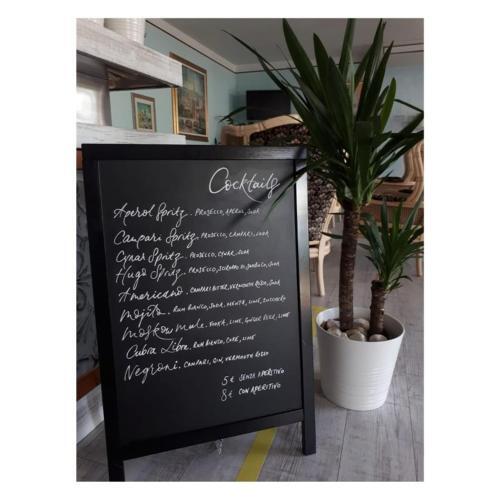 Cocktails
Aperol Spritz. PROSECCO, APEROL, SODA
Campari Spritz. PROSECCO, CAMPARI, SODA
Cynar Spritz. PROSECCO, CYNAR, SODA
Hugo Spritz. PROSECCO, SCIROPPO DI SAMBUCO, SODA
Americano. CAMPARI BITTER, VERMOUTH ROSSO, SODA
Mojito. RUM BIANCO, SODA, MENTA, LIME, ZUCCHERO
Moskow Mule. VODKA, LIME, GINGER BEER, LIME
Cubra Libra. RUM BIANCO, COKE, LIME
Negroni. CAMPARI, GIN, VERMOUTH ROSSO
5€ SENZA APERITIVO
8€ CON APERITIVO